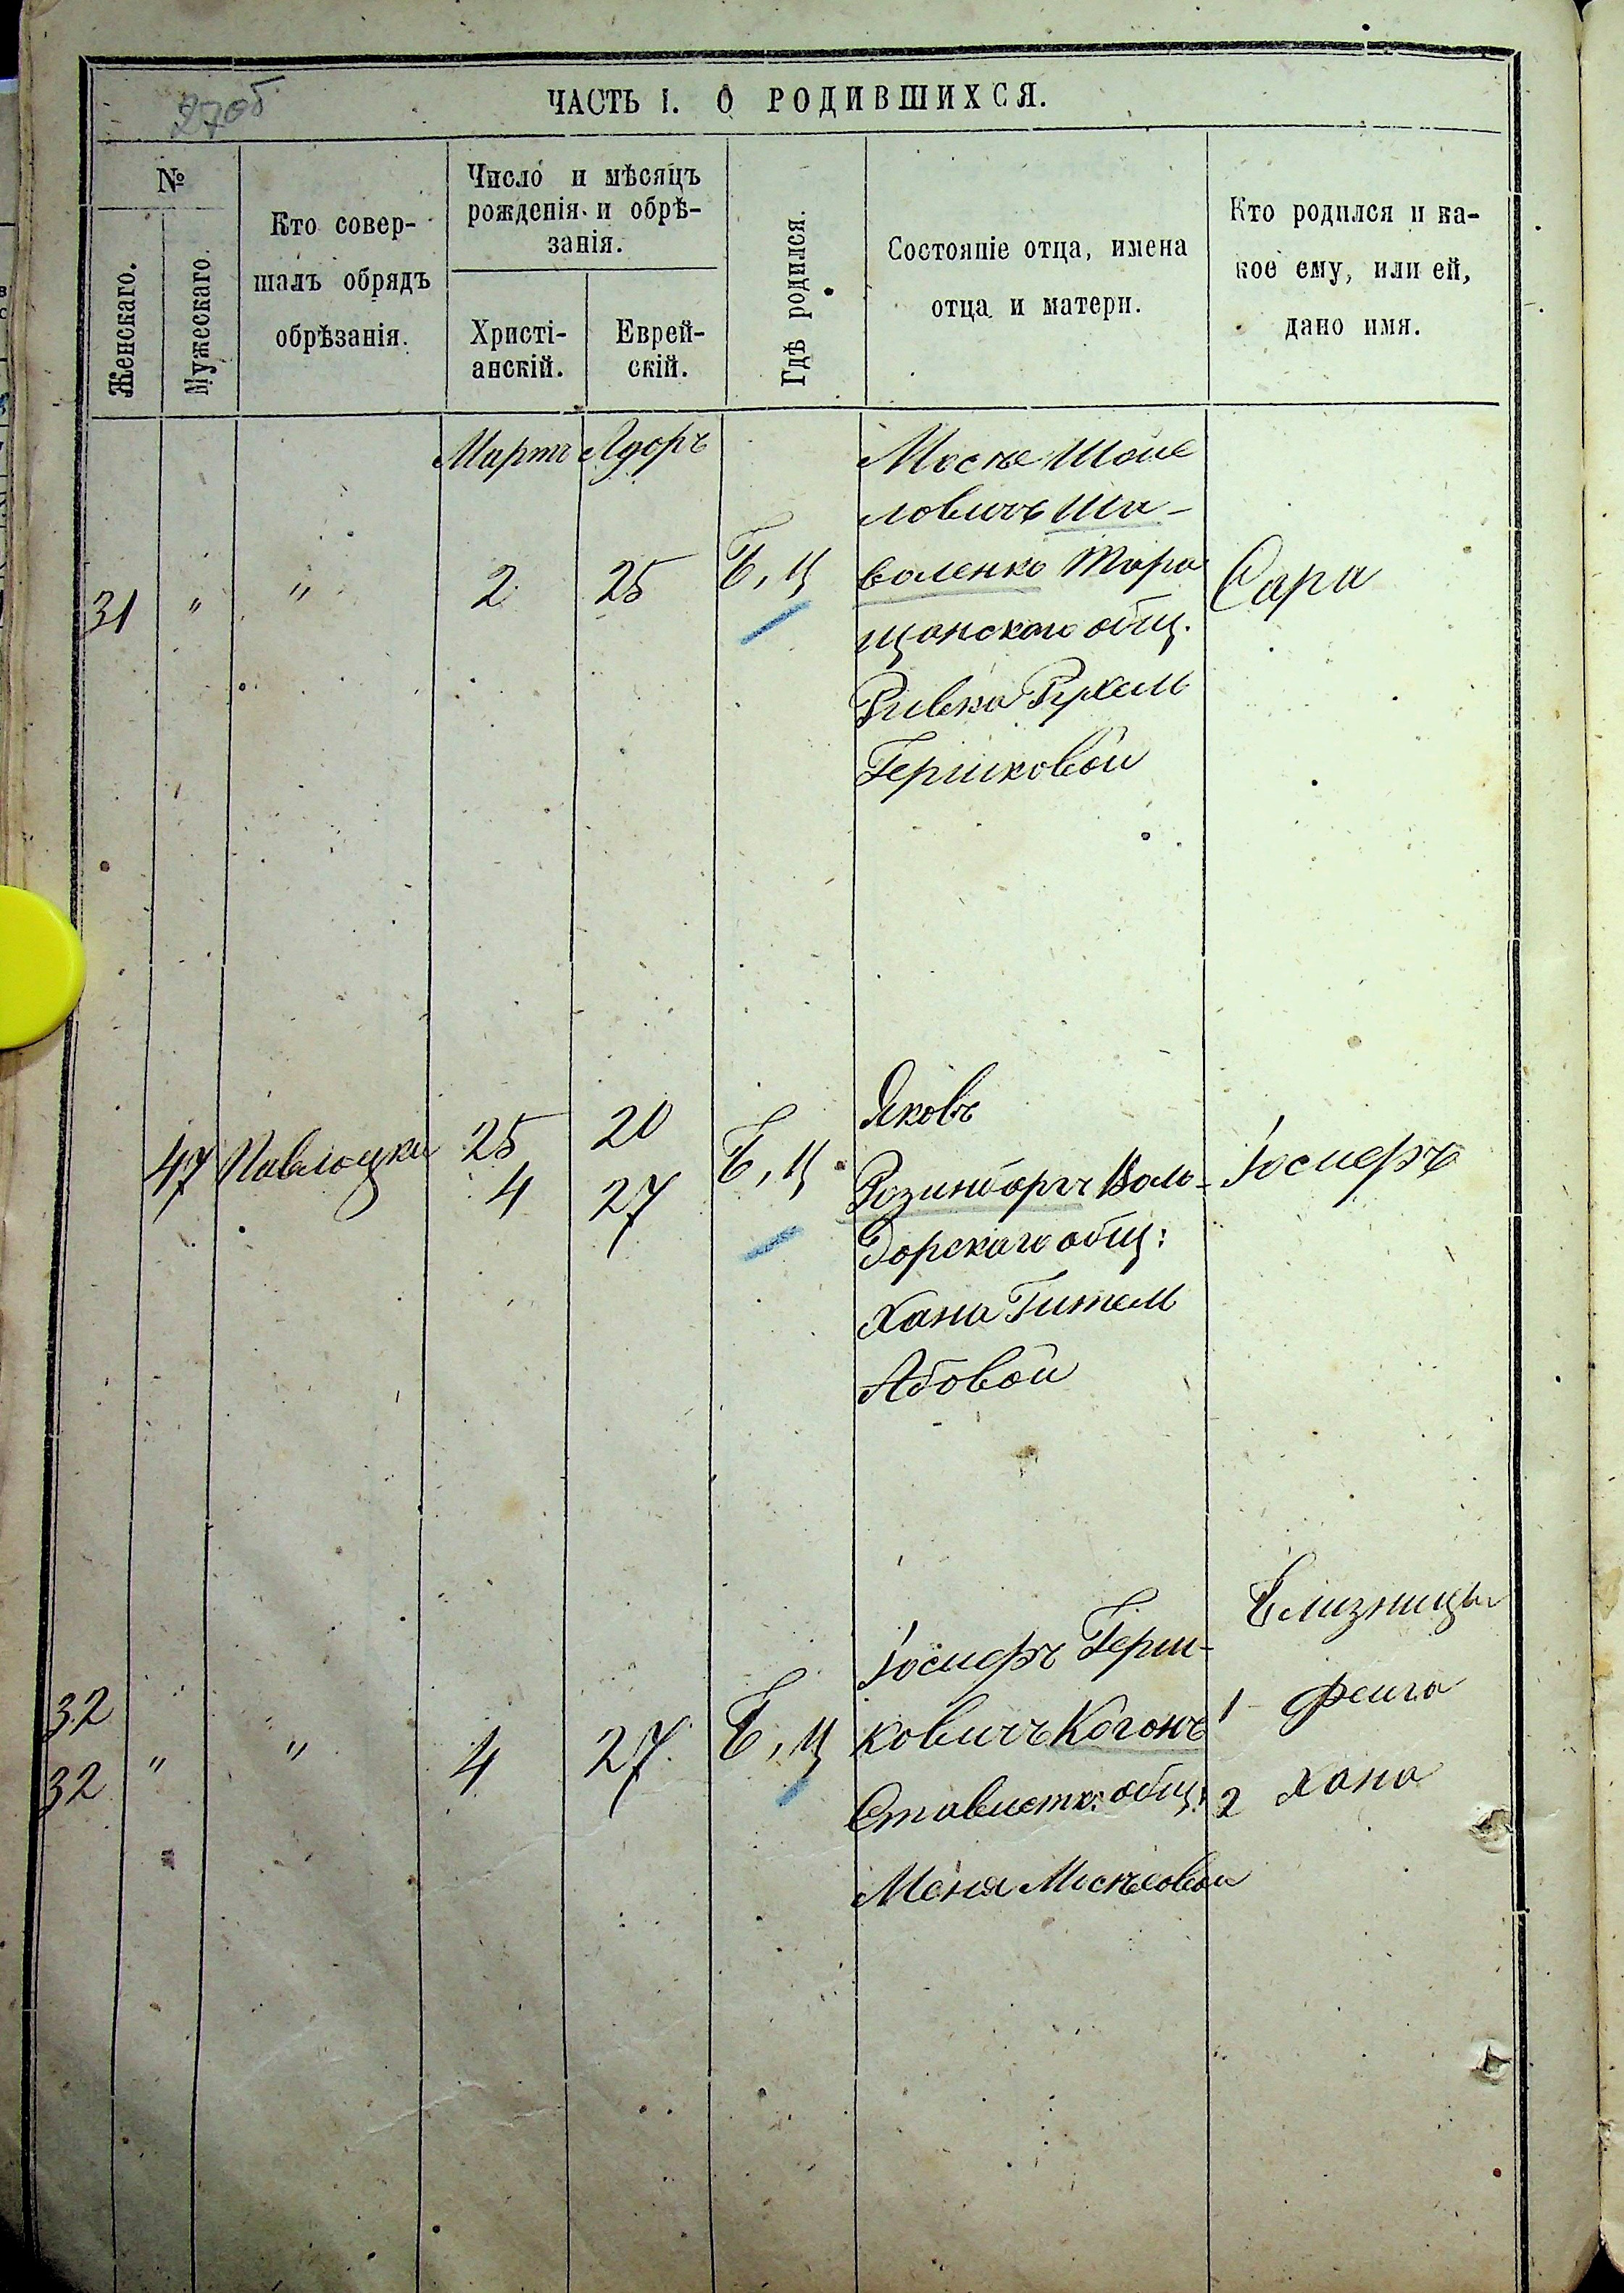 27об
ЧАСТЬ I. О РОДИВШИХСЯ.
№
Женскаго.
Мужескаго.
Кто совер-
шалъ обрядъ
обрѣзанія.
Число и мѣсяцъ
рожденія и обрѣ-
занія.
Христі-
анскій.
Еврей-
скій.
Гдѣ родился.
Состояніе отца, имена
отца и матери.
Кто родился и ка-
кое ему, или ей,
дано имя.
Мартъ Адоръ
31 " " 2 25 Б, Ц
Мостье Шое
ловичъ Ша-
воленко Тара
щанского общ.
Ривка Рухель
Гершковой
Сара
47 Паволоцки 25 20 Б, Ц
4 27
Яковъ
Розинборгъ Воло-
дорскаго общ:
Хана Гитель
Абовой
Іосифъ
32 " " 4 27 Б, Ц
32
Іосифъ Герш-
ковичъ Когонъ
Ставистк: общ:
Меня
Близницы
1 Феига
2 Хана